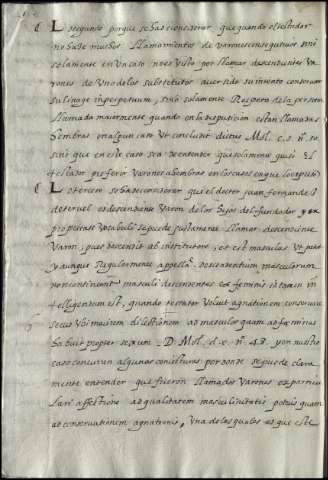 Lo segundo porque se ha de considerar, que quando el fundador
no haze muchos llamamientos de varones consegutivos sino
solamente en un caso no es visto por llamar descendientes va
rones de uno de los substitutos aver sido su intento conservar
su linage in perpetuum, sino solamente respecto de la persona
llamada maiormente quando en la disposicion estan llamadas
hembras en algun caso ut concludit dictus Mol. c. 5. n.
sino que en este caso sea de entender que solamente quiso el
testador preferir varones a hembras en los casos en que lo
Lo tercero se ha de considerar que el doctor juan fernandez
de teruel es descendiente varon de los hijos del fundador y ex
proprietate vocabuli se puede justamente llamar descendiente
varon, pues descendit ab institutore, et est masculus et
y aunque Regularmente appellatione descendentium masculorum
non continentur masculi descendentes ex feminis id tamen in
telligendum est, quando testator voluit agnationem conservare
secus ubi maiorem dilectionem ad masculos quam ad feminas
habuit propter sexum. D. Mol. d. c. n. 43. y en nuestro
caso concurren algunas conjeturas por donde se puede clara
mente entender que fueron llamados varones ex particu
lari affectione ad qualitatem masculinitatis potius quam
ad conservationem agnationis, una de las quales es que este